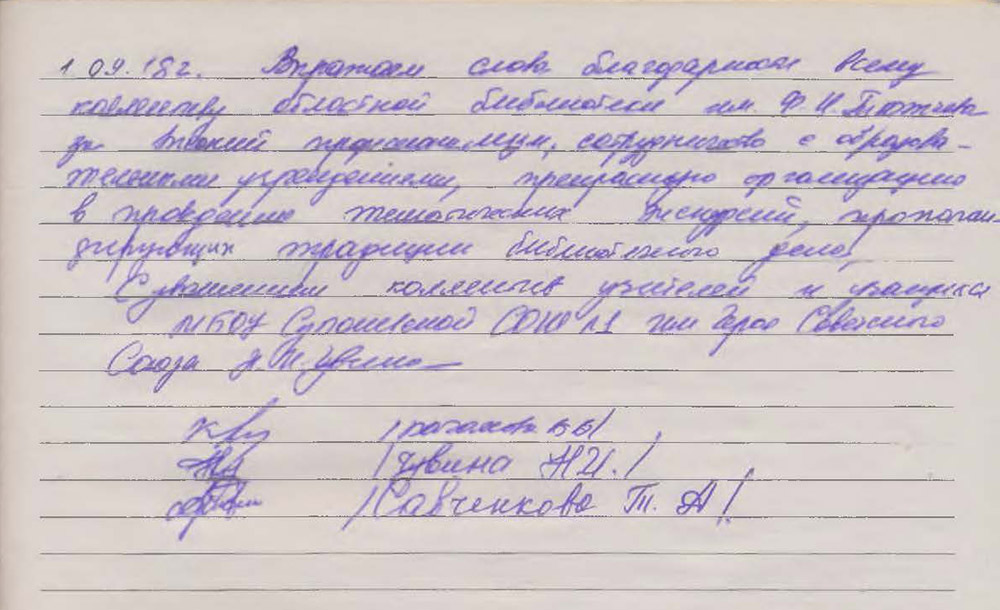 1.09.18г. Выражаем слова благодарности всему
коллективу областной библиотеки им. Ф.И. Тютчева
за высокий профессионализм, сотрудничество с образова-
тельными учреждениями, прекрасную организацию
в проведение тематических экскурсий, пропаган-
дирующих традиции библиотечного дела,
С уважением коллектив учителей и учащихся
МБОУ Супоневской СОШ №1 им Героя Советского
Союза Н.И. Чувина
/ В.В./
/Чувина Н.И./
/Савченкова Т. А/